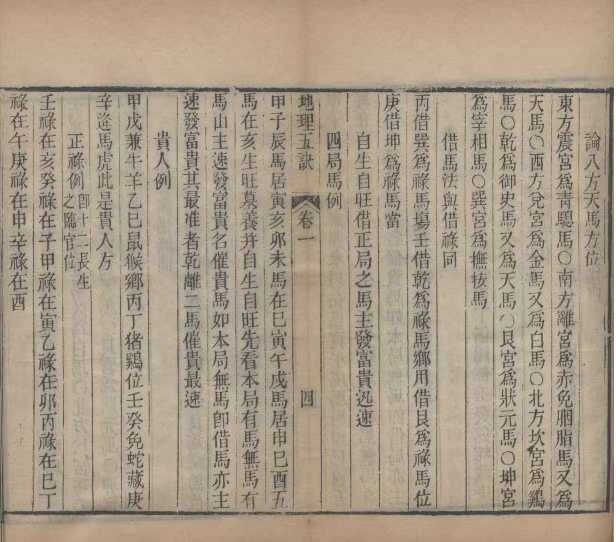 論八方天馬方位
東方震宮為青驄馬〇南方離宮為赤兔胭脂馬又為
天馬〇西方兌宮為金馬又為白馬〇北方坎宮為鷄
馬〇乾宮為御史馬又為天馬〇艮宮為狀元馬〇坤宮
為宰相馬〇巽宮為撫按馬
借馬法與借祿同
丙借巽為祿馬塲壬借乾為祿馬鄉甲借艮為祿馬位
庚借坤為祿馬當
自生自旺借正局之馬主發富貴迅速
四局馬例
地理五訣
卷一
四
甲子辰馬居寅亥卯未馬在巳寅午戌馬居申巳酉五
馬在亥生旺㒷養并自生自旺先看本局有馬無馬有
馬山主速發富貴名催貴馬如本局無馬卽借馬亦主
速發富貴其最准者乾離二馬催貴最速
貴人例
甲戊兼牛羊乙巳鼠候鄉丙丁猪鷄位壬癸兔蛇藏庚
辛逢馬虎此是貴人方
正祿例卽十二長生
之臨官位
壬祿在亥癸祿在子甲祿在寅乙祿在卯丙祿在巳丁
祿在午庚祿在申辛祿在酉